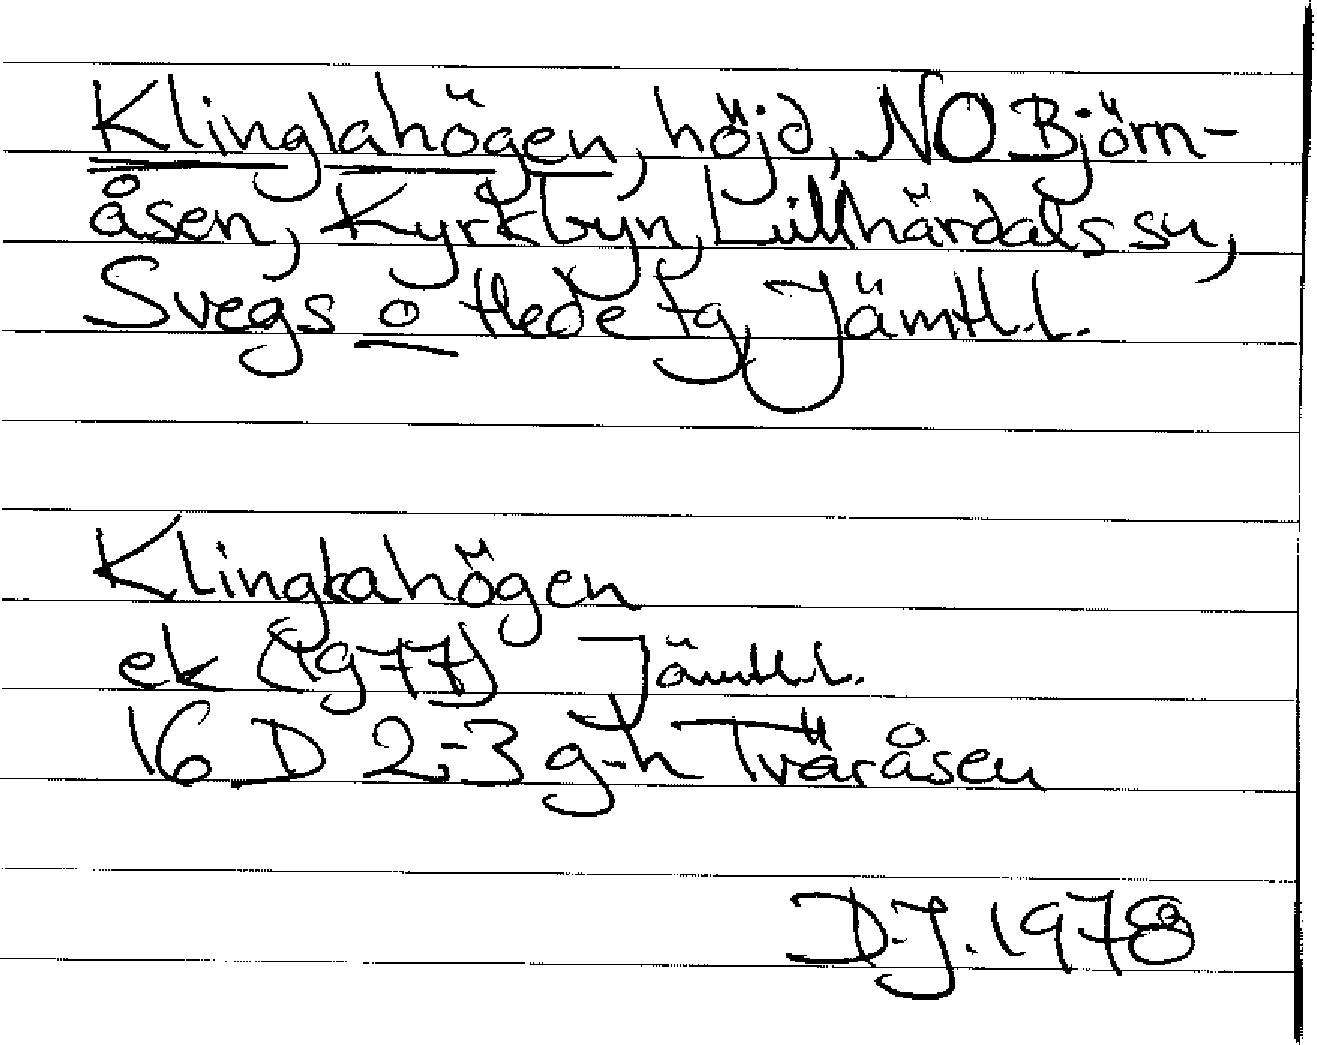 Klinglahögen, höjd, NO Björn-
åsen, Kyrkbyn, Lillhärdals sn,
Svegs o Hede fg, Jämtl.l.
Klinglahögen
ek (1977) Jämtl.l.
16 D 2-3 g-h Tväråsen
D.J. 1978